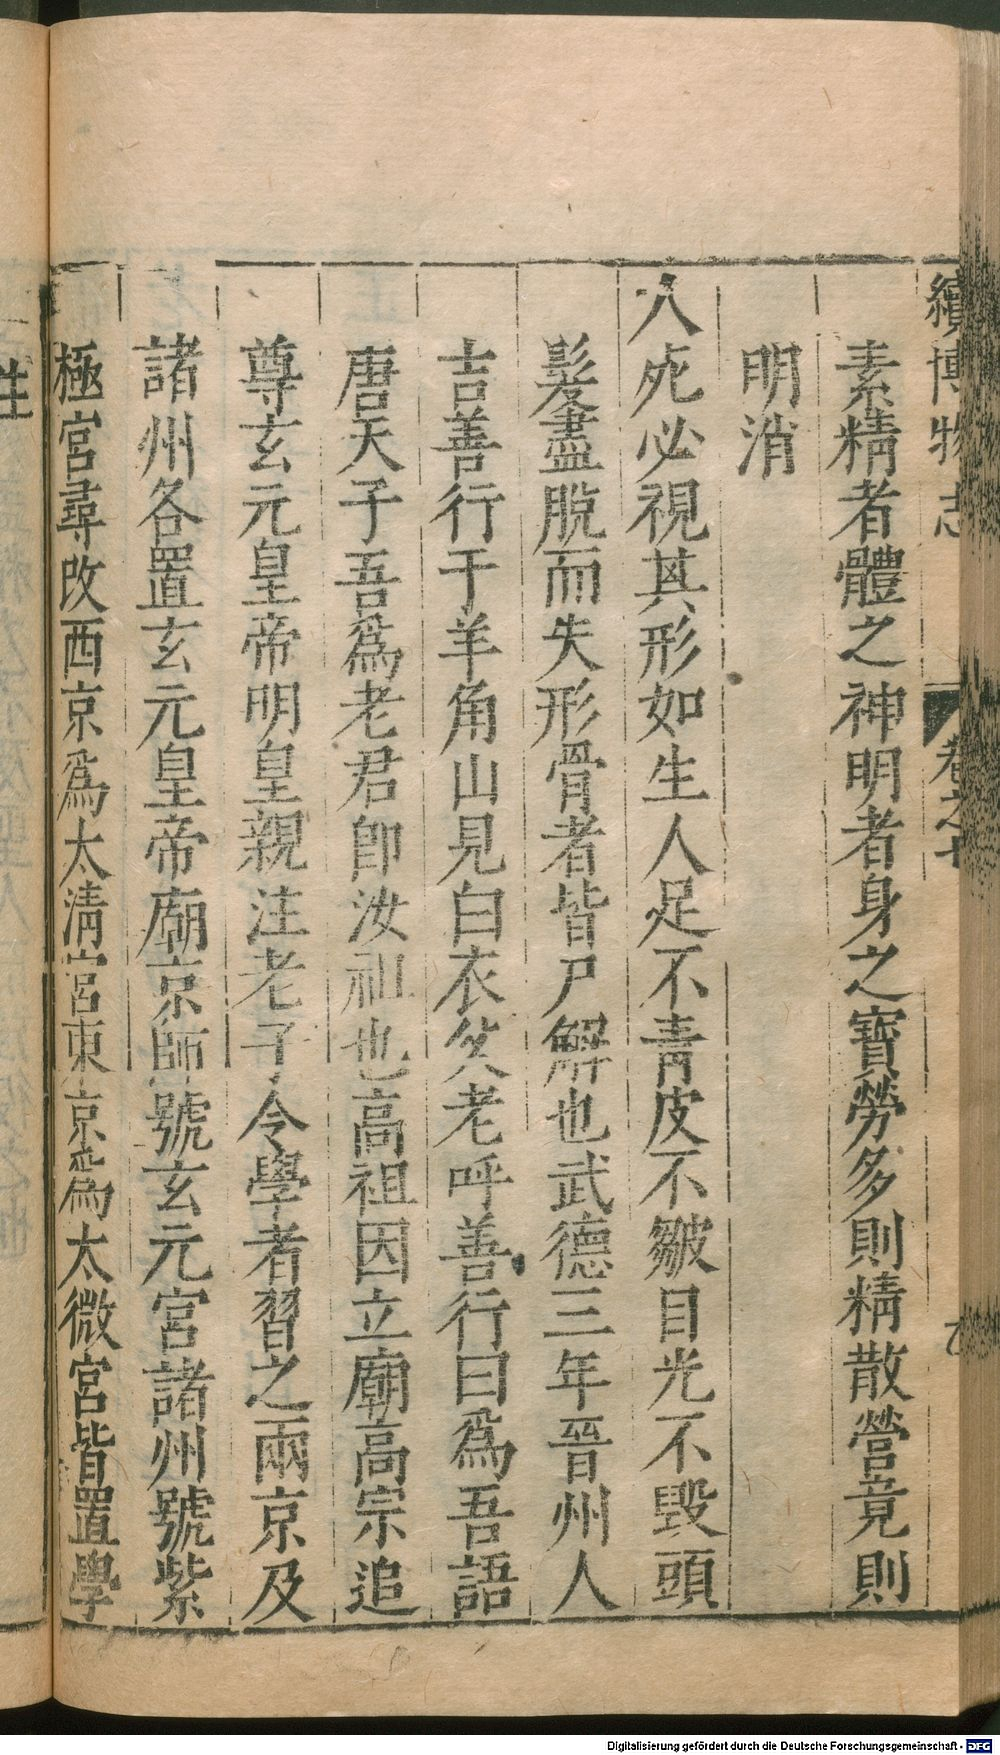 續博物志 卷之七
素精者體之神明者身之寶勞多則精散營竟則
明消
人死必視其形如生人足不青皮不皺目光不毀頭
髮盡脫而失形骨者皆尸解也武德三年晉州人
吉善行于羊角山見白衣父老呼善行曰爲吾語
唐天子吾爲老君卽汝祖也高祖因立廟高宗追
尊玄元皇帝明皇親注老子令學者習之兩京及
諸州各置玄元皇帝廟京師號玄元宮諸州號紫
極宮尋改西京爲太淸宮東京爲太微宮皆置學
Digitalisierung gefördert durch die Deutsche Forschungsgemeinschaft - DFG